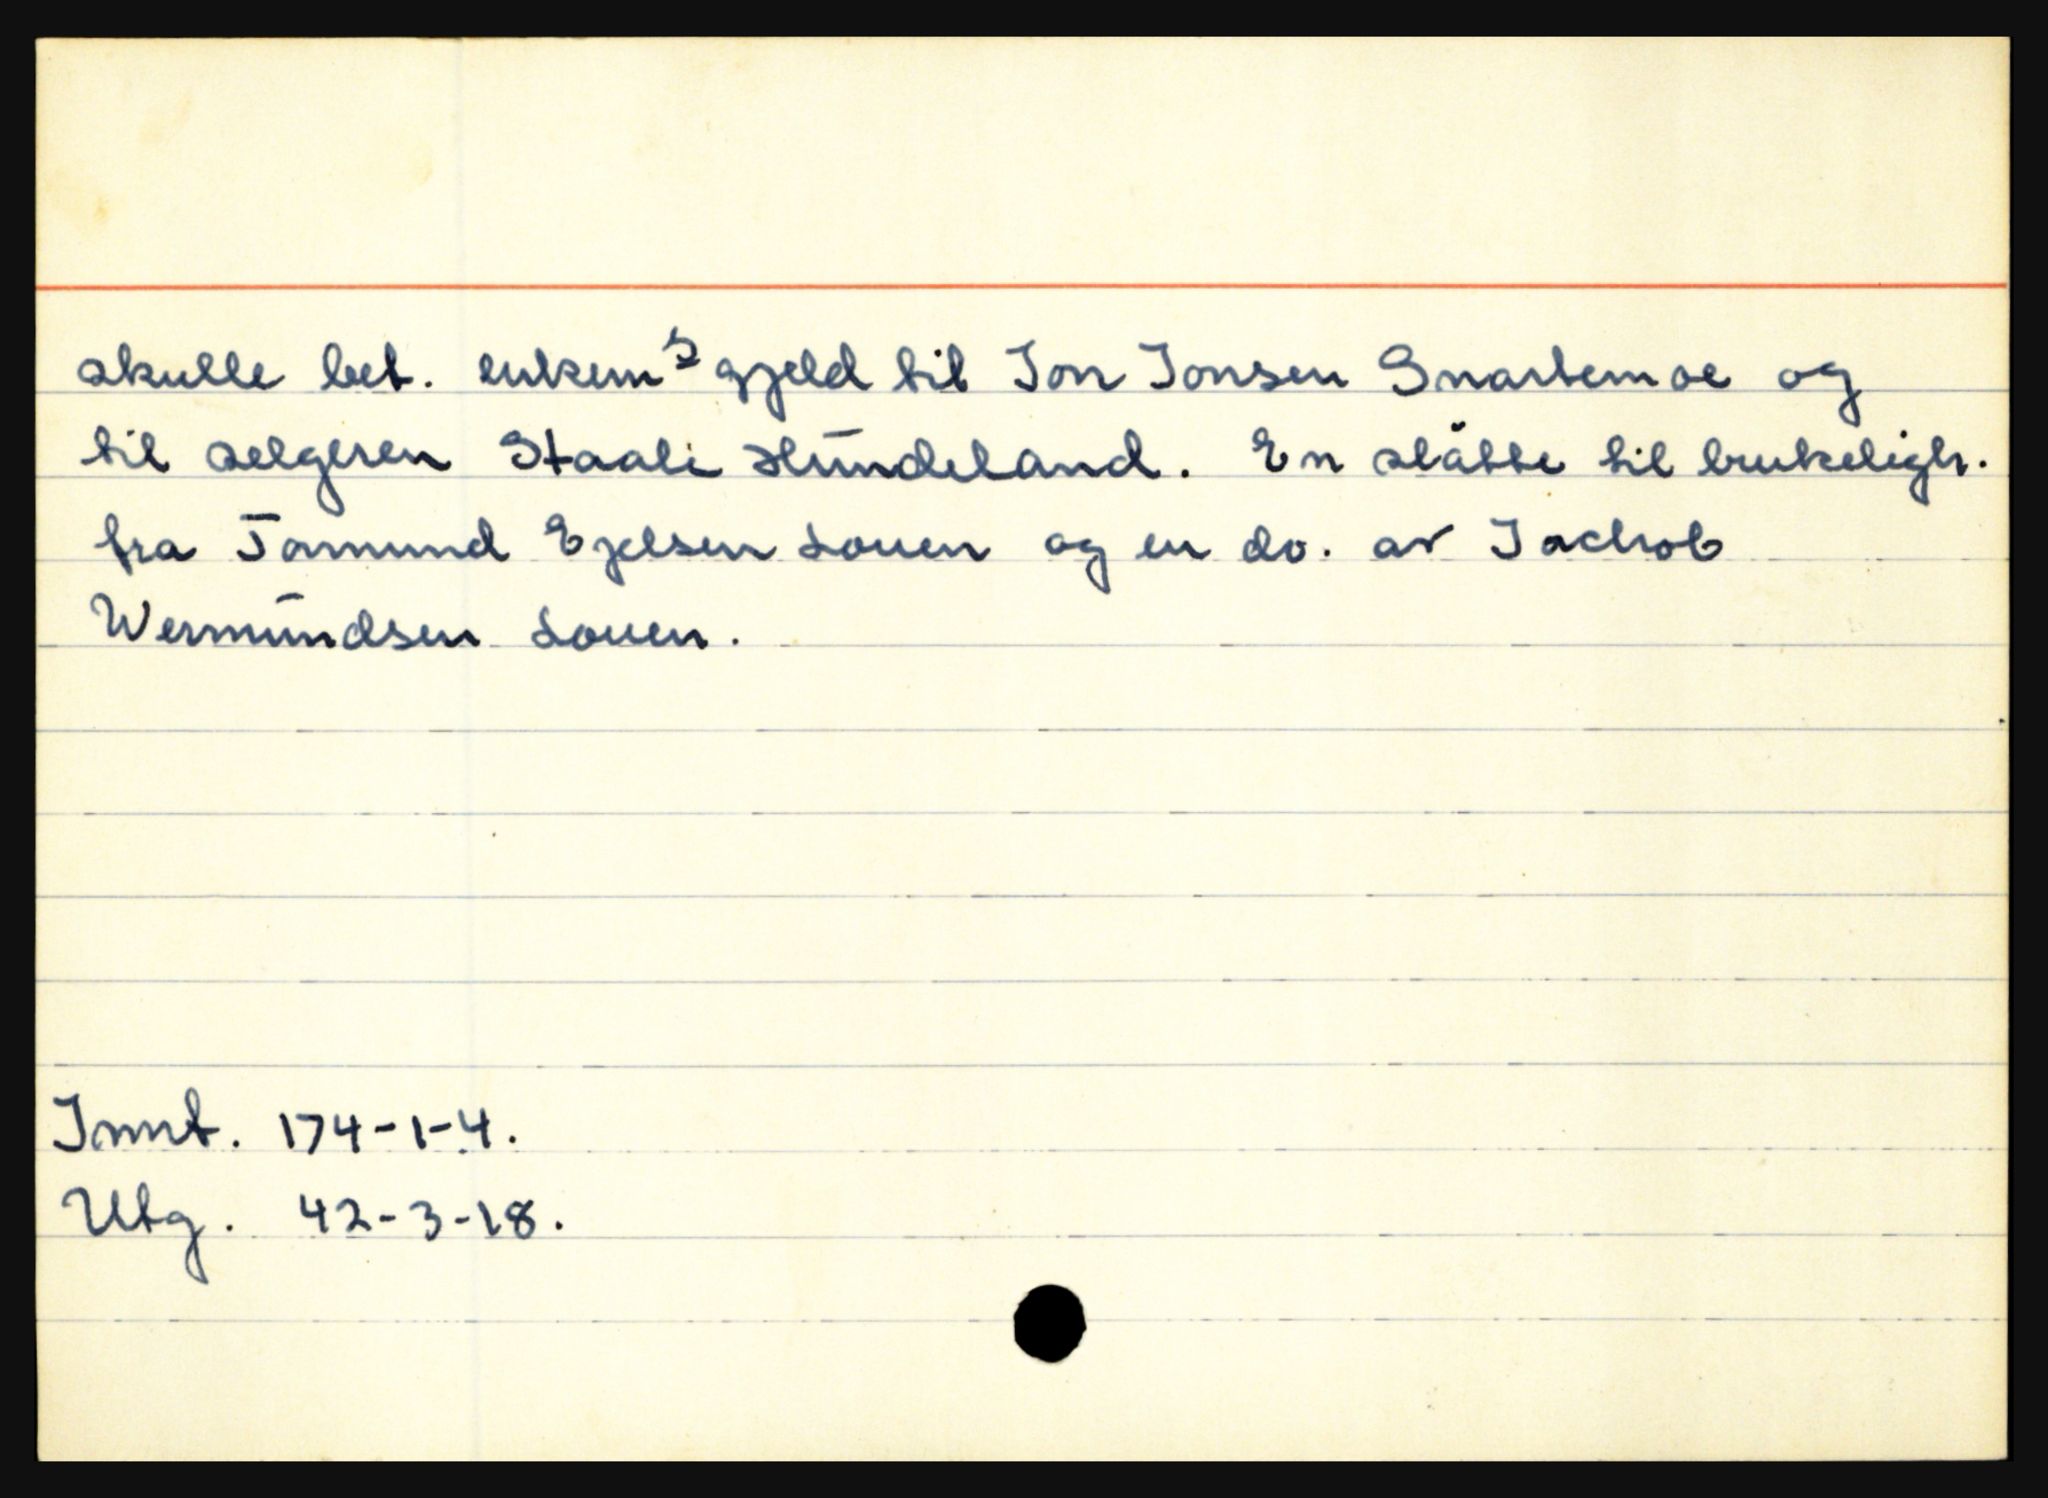 skulle bet. enkem's gjeld til Jon Jonsen Snartemoe og
til selgeren Staali Hundeland. En slåtte til brukeligh.
fra Tormund Ejelsen Louen og en do. av Jachob
Wermundsen Louen.
Innt. 174-1-4.
Utg. 42-3-18.